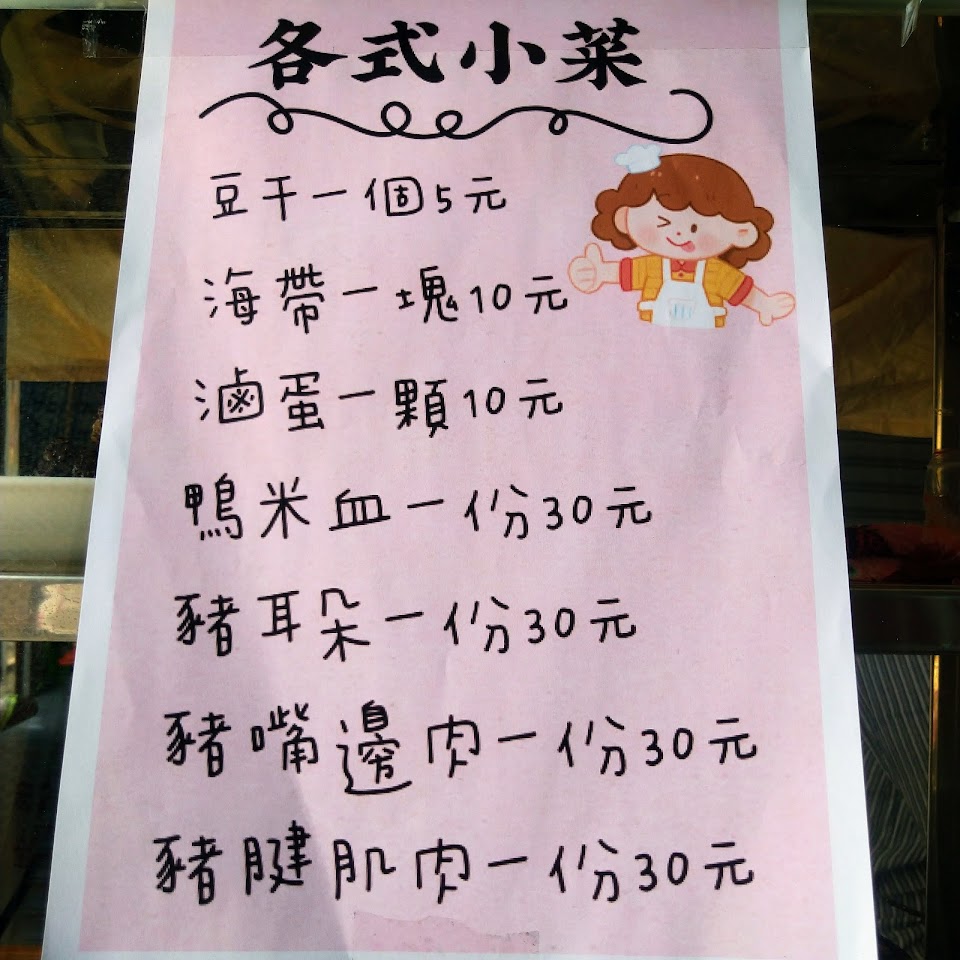 各式小菜
豆干一個5元
海帶一塊10元
滷蛋一顆10元
鴨米血一份30元
豬耳朵一份30元
豬嘴邊肉一份30元
豬腱肌肉一份30元